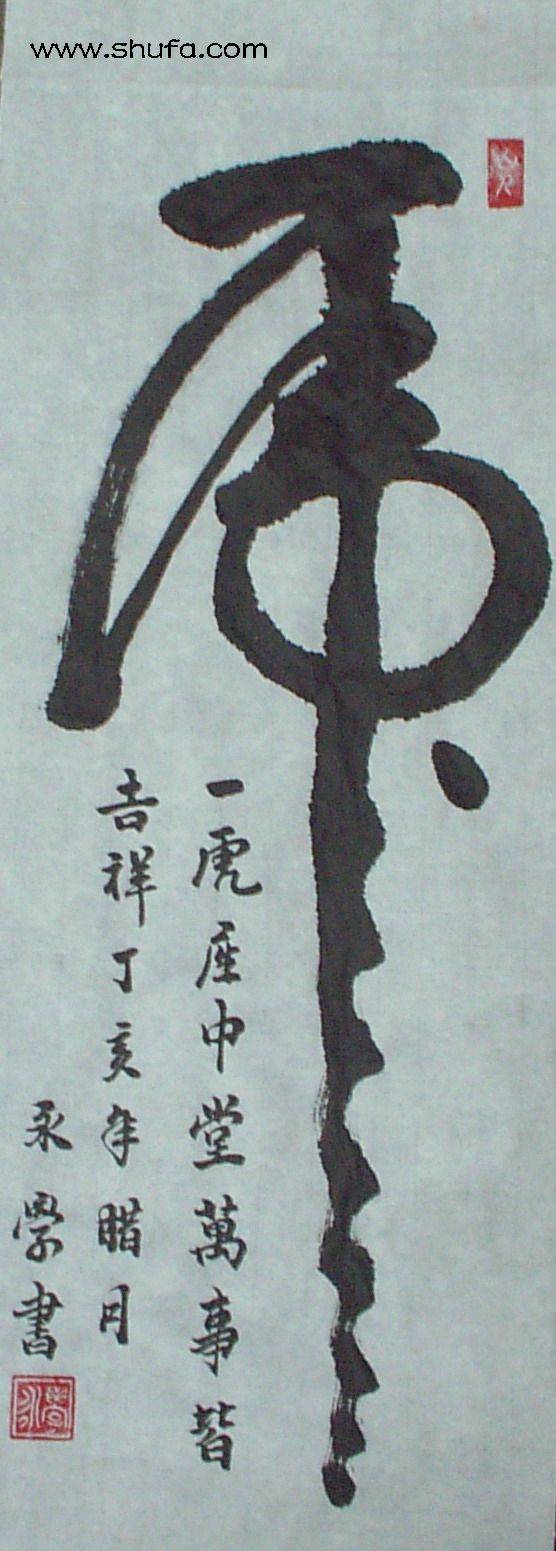 www.shufa.com
虎
一虎座中堂萬事皆
吉祥丁亥年腊月
永學書